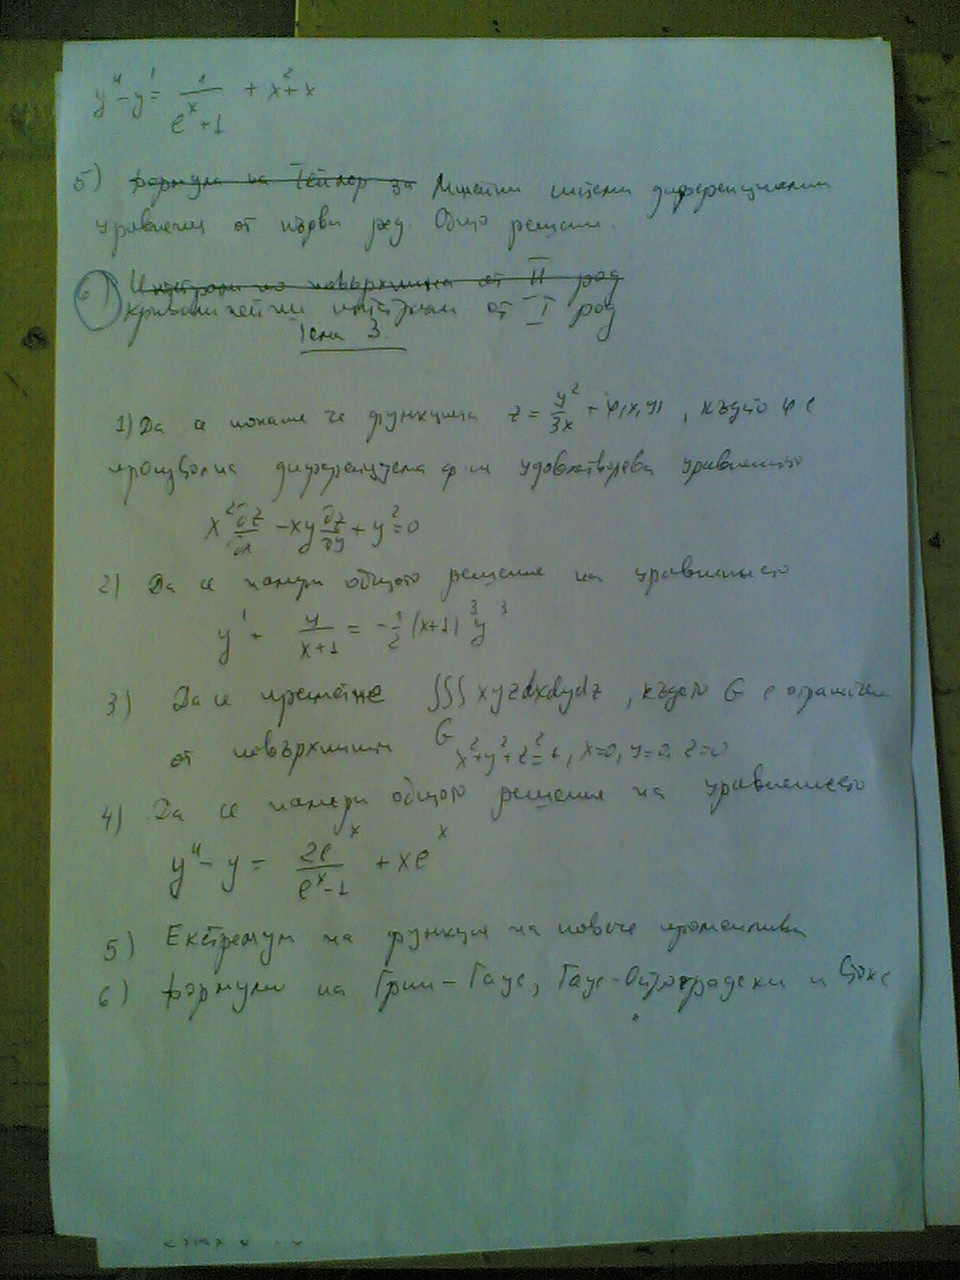 y" - y' = 1/(e^x + 1) + x² + x
5) Формула на Тейлор за Линейни диференциални
уравнения от първи ред. Общо решение.
6) по повърхнина от II род
Криволинейни интеграли от I род
Тема 3.
1) Да се покаже че функцията z = y²/3x + φ(x,y), където φ е
произволна диференцуема ф-я удовлетворява уравнението
x² ∂z/∂x - xy ∂z/∂y + y² = 0
2) Да се намери общото решение на уравнението
y' + y/(x+1) = -1/2 (x+1)³ y³
3) Да се пресметне ∫∫∫ xyzdxdydz, където G е ограничен
от повърхнини G x²+y²+z²= , x=0, y=0, z=0
4) Да се намери общото решение на уравнението
y" - y = 2e^x/(e^x - 1) + xe^x
5) Екстремум на функция на повече променливи
6) Формули на Грин-Гаус, Гаус-Остроградски и Стокс